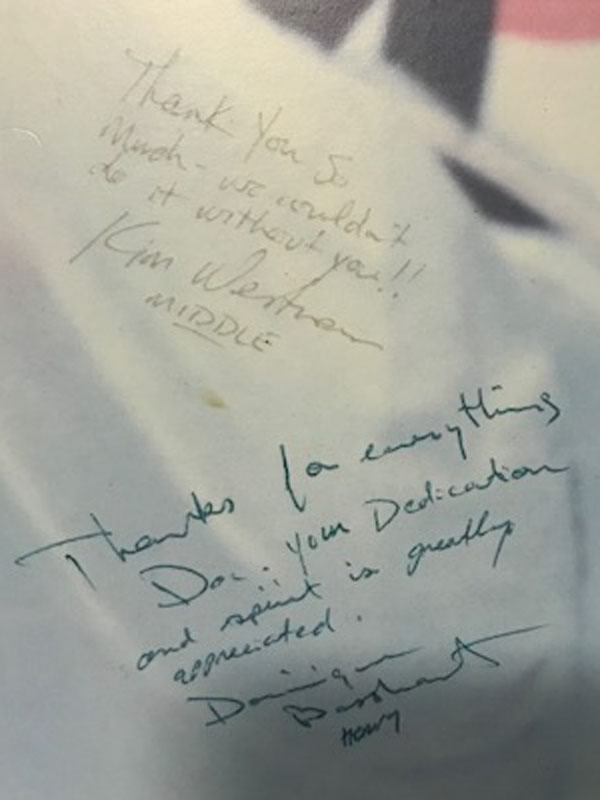 Thank You So
Much - we couldn't
do it without you!!
Kim Westman
MIDDLE
Thanks for everything
Doc. your Dedication
and spirit is greatly
appreciated.
Dominique
Henry